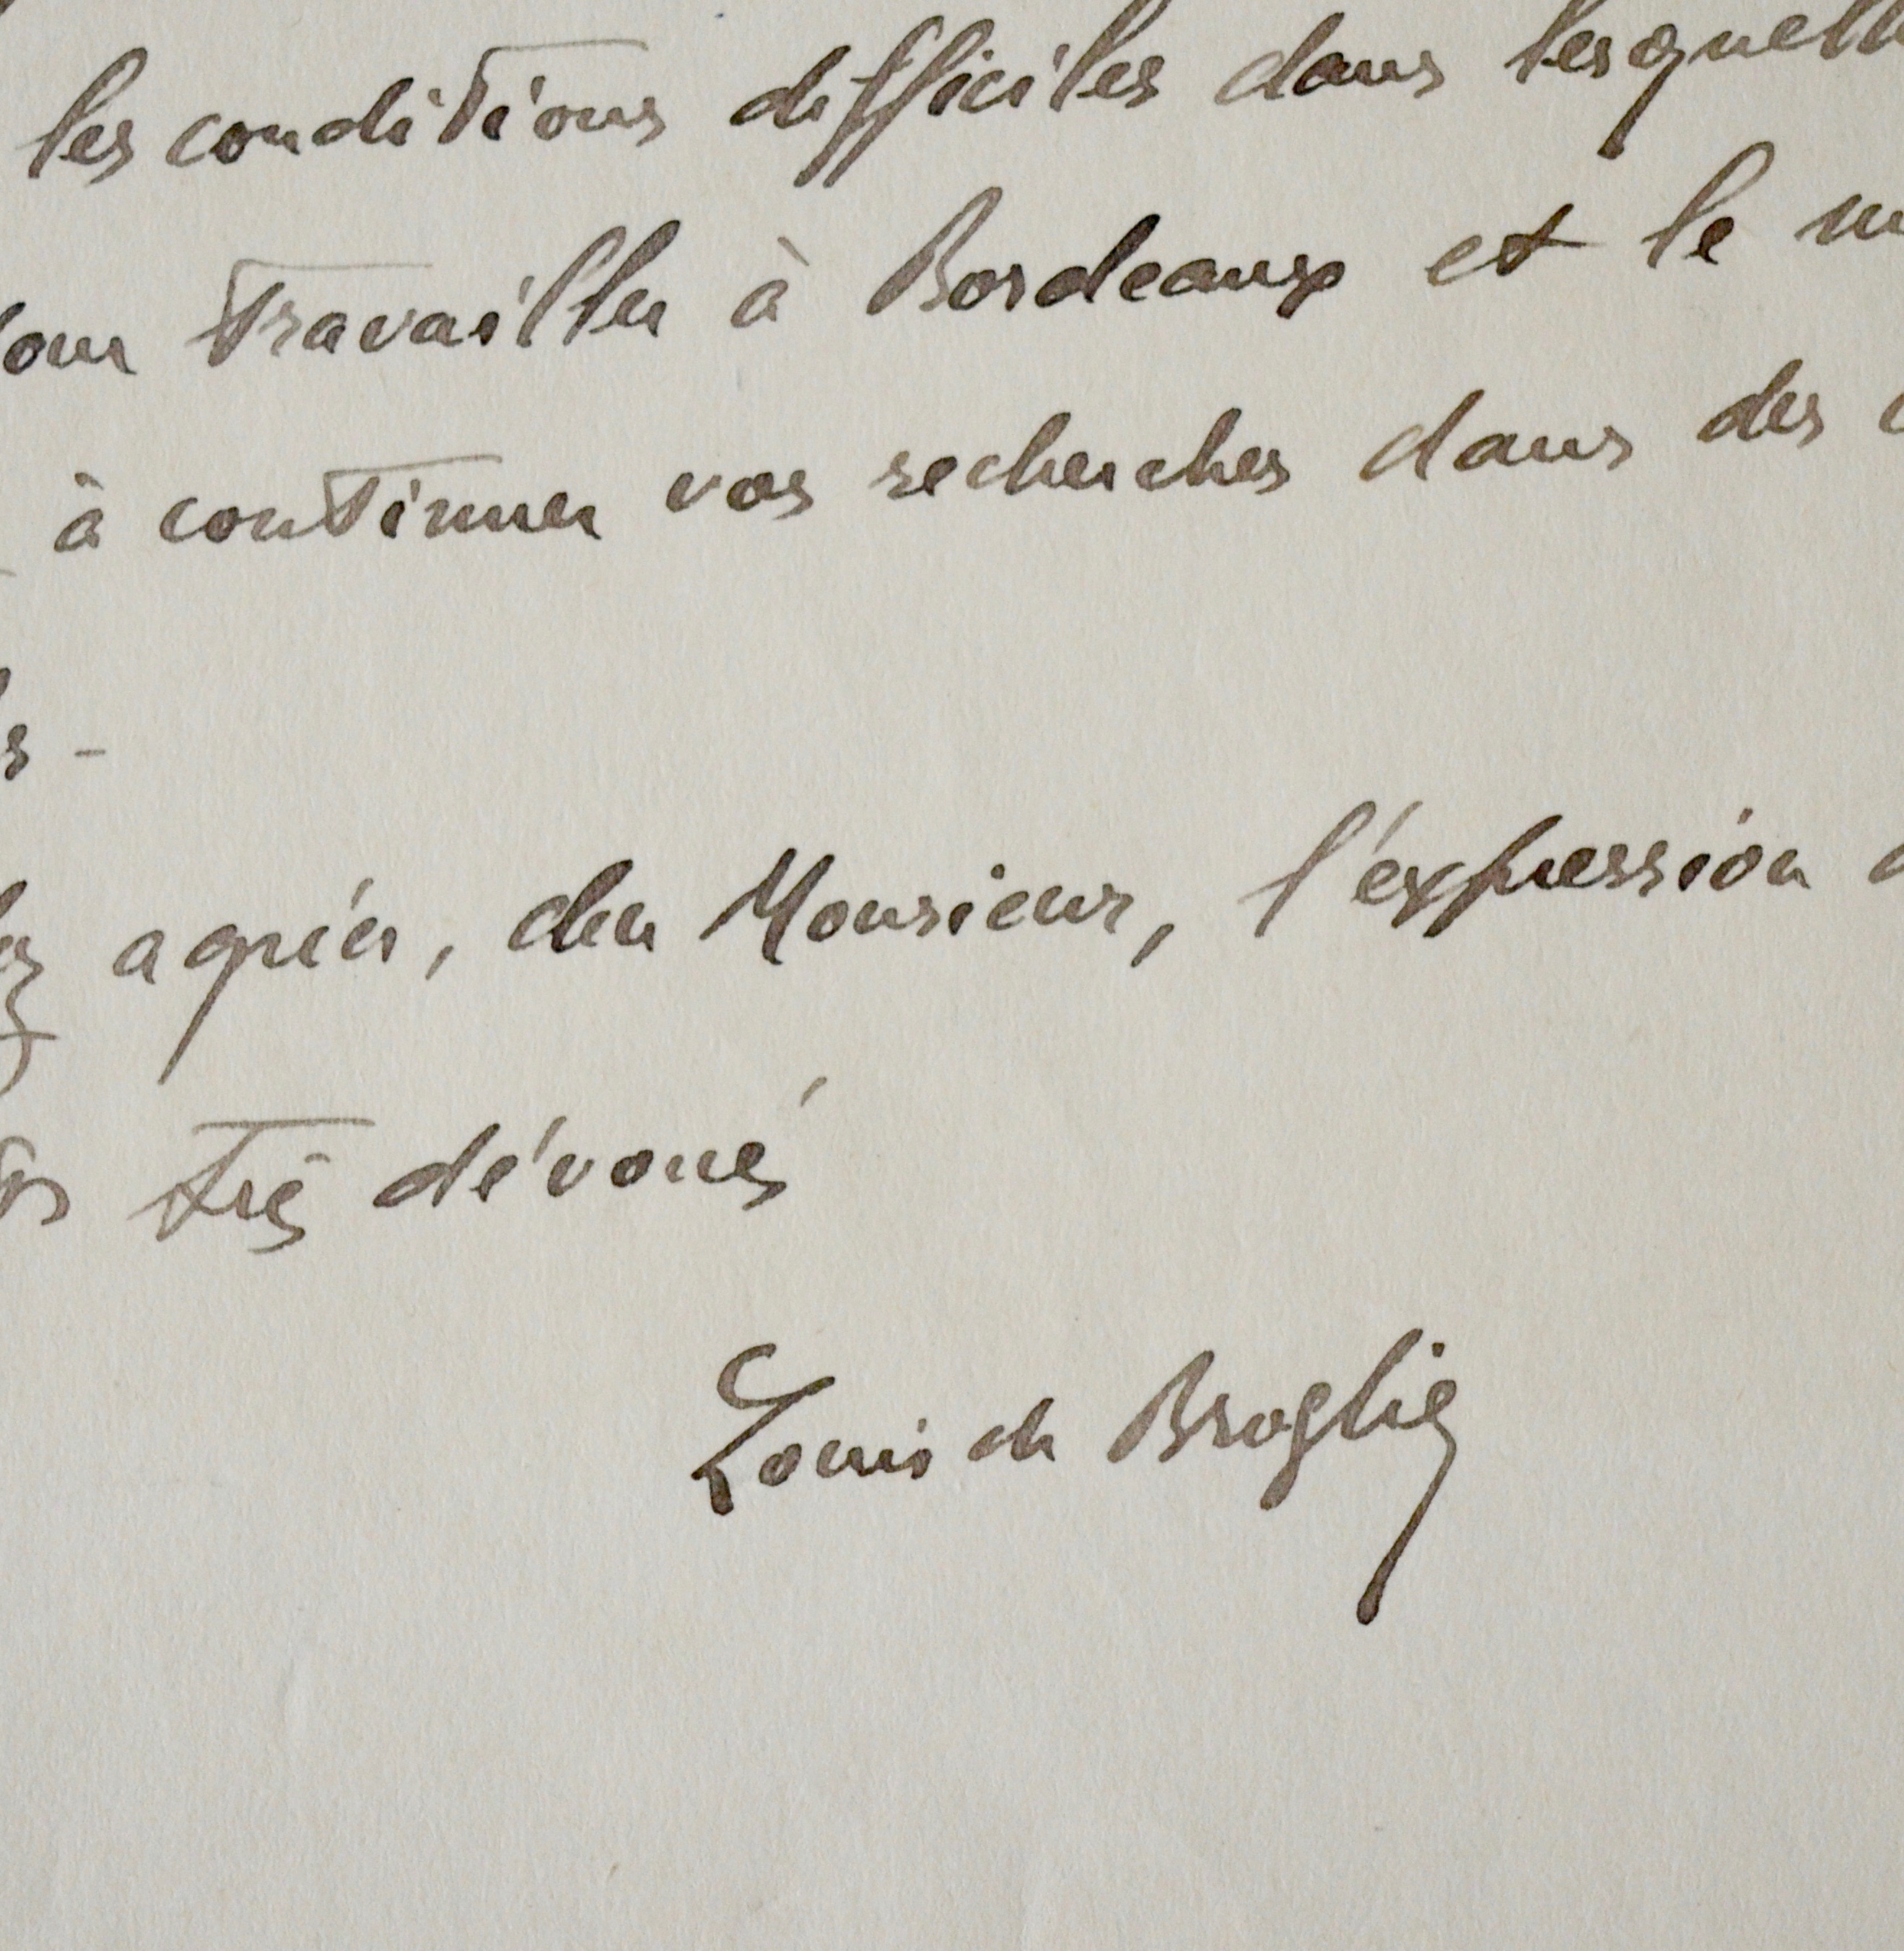 les conditions difficiles dans lesquelle
travailler à Bordeaux et le
à continuer vos recherches dans des
agréer, cher Monsieur, l'expression
très dévoués
Louis de Broglie